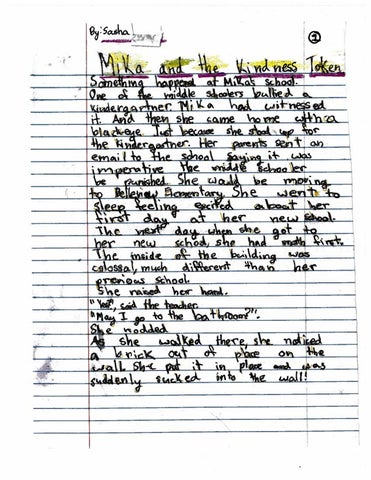 By: Sasha
1
Mika and the Kindness Token
Something happened at Mika's school.
One of the middle schoolers bullied a
kindergartner. Mika had witnessed
it. And then she came home with a
blackeye. Just because she stood up for
the kindergartner. Her parents sent an
email to the school saying it was
imperative the middle schooler
be punished. She would be moving
to Elementary. She went to
sleep feeling excited about her
first day at her new school.
The next day when she got to
her new school, she had math first.
The inside of the building was
colossal, much different than her
previous school.
She raised her hand.
"Yes", said the teacher.
"May I go to the bathroom?".
She nodded.
As she walked there, she noticed
a brick out of place on the
wall. She put it in place and was
suddenly sucked into the wall!